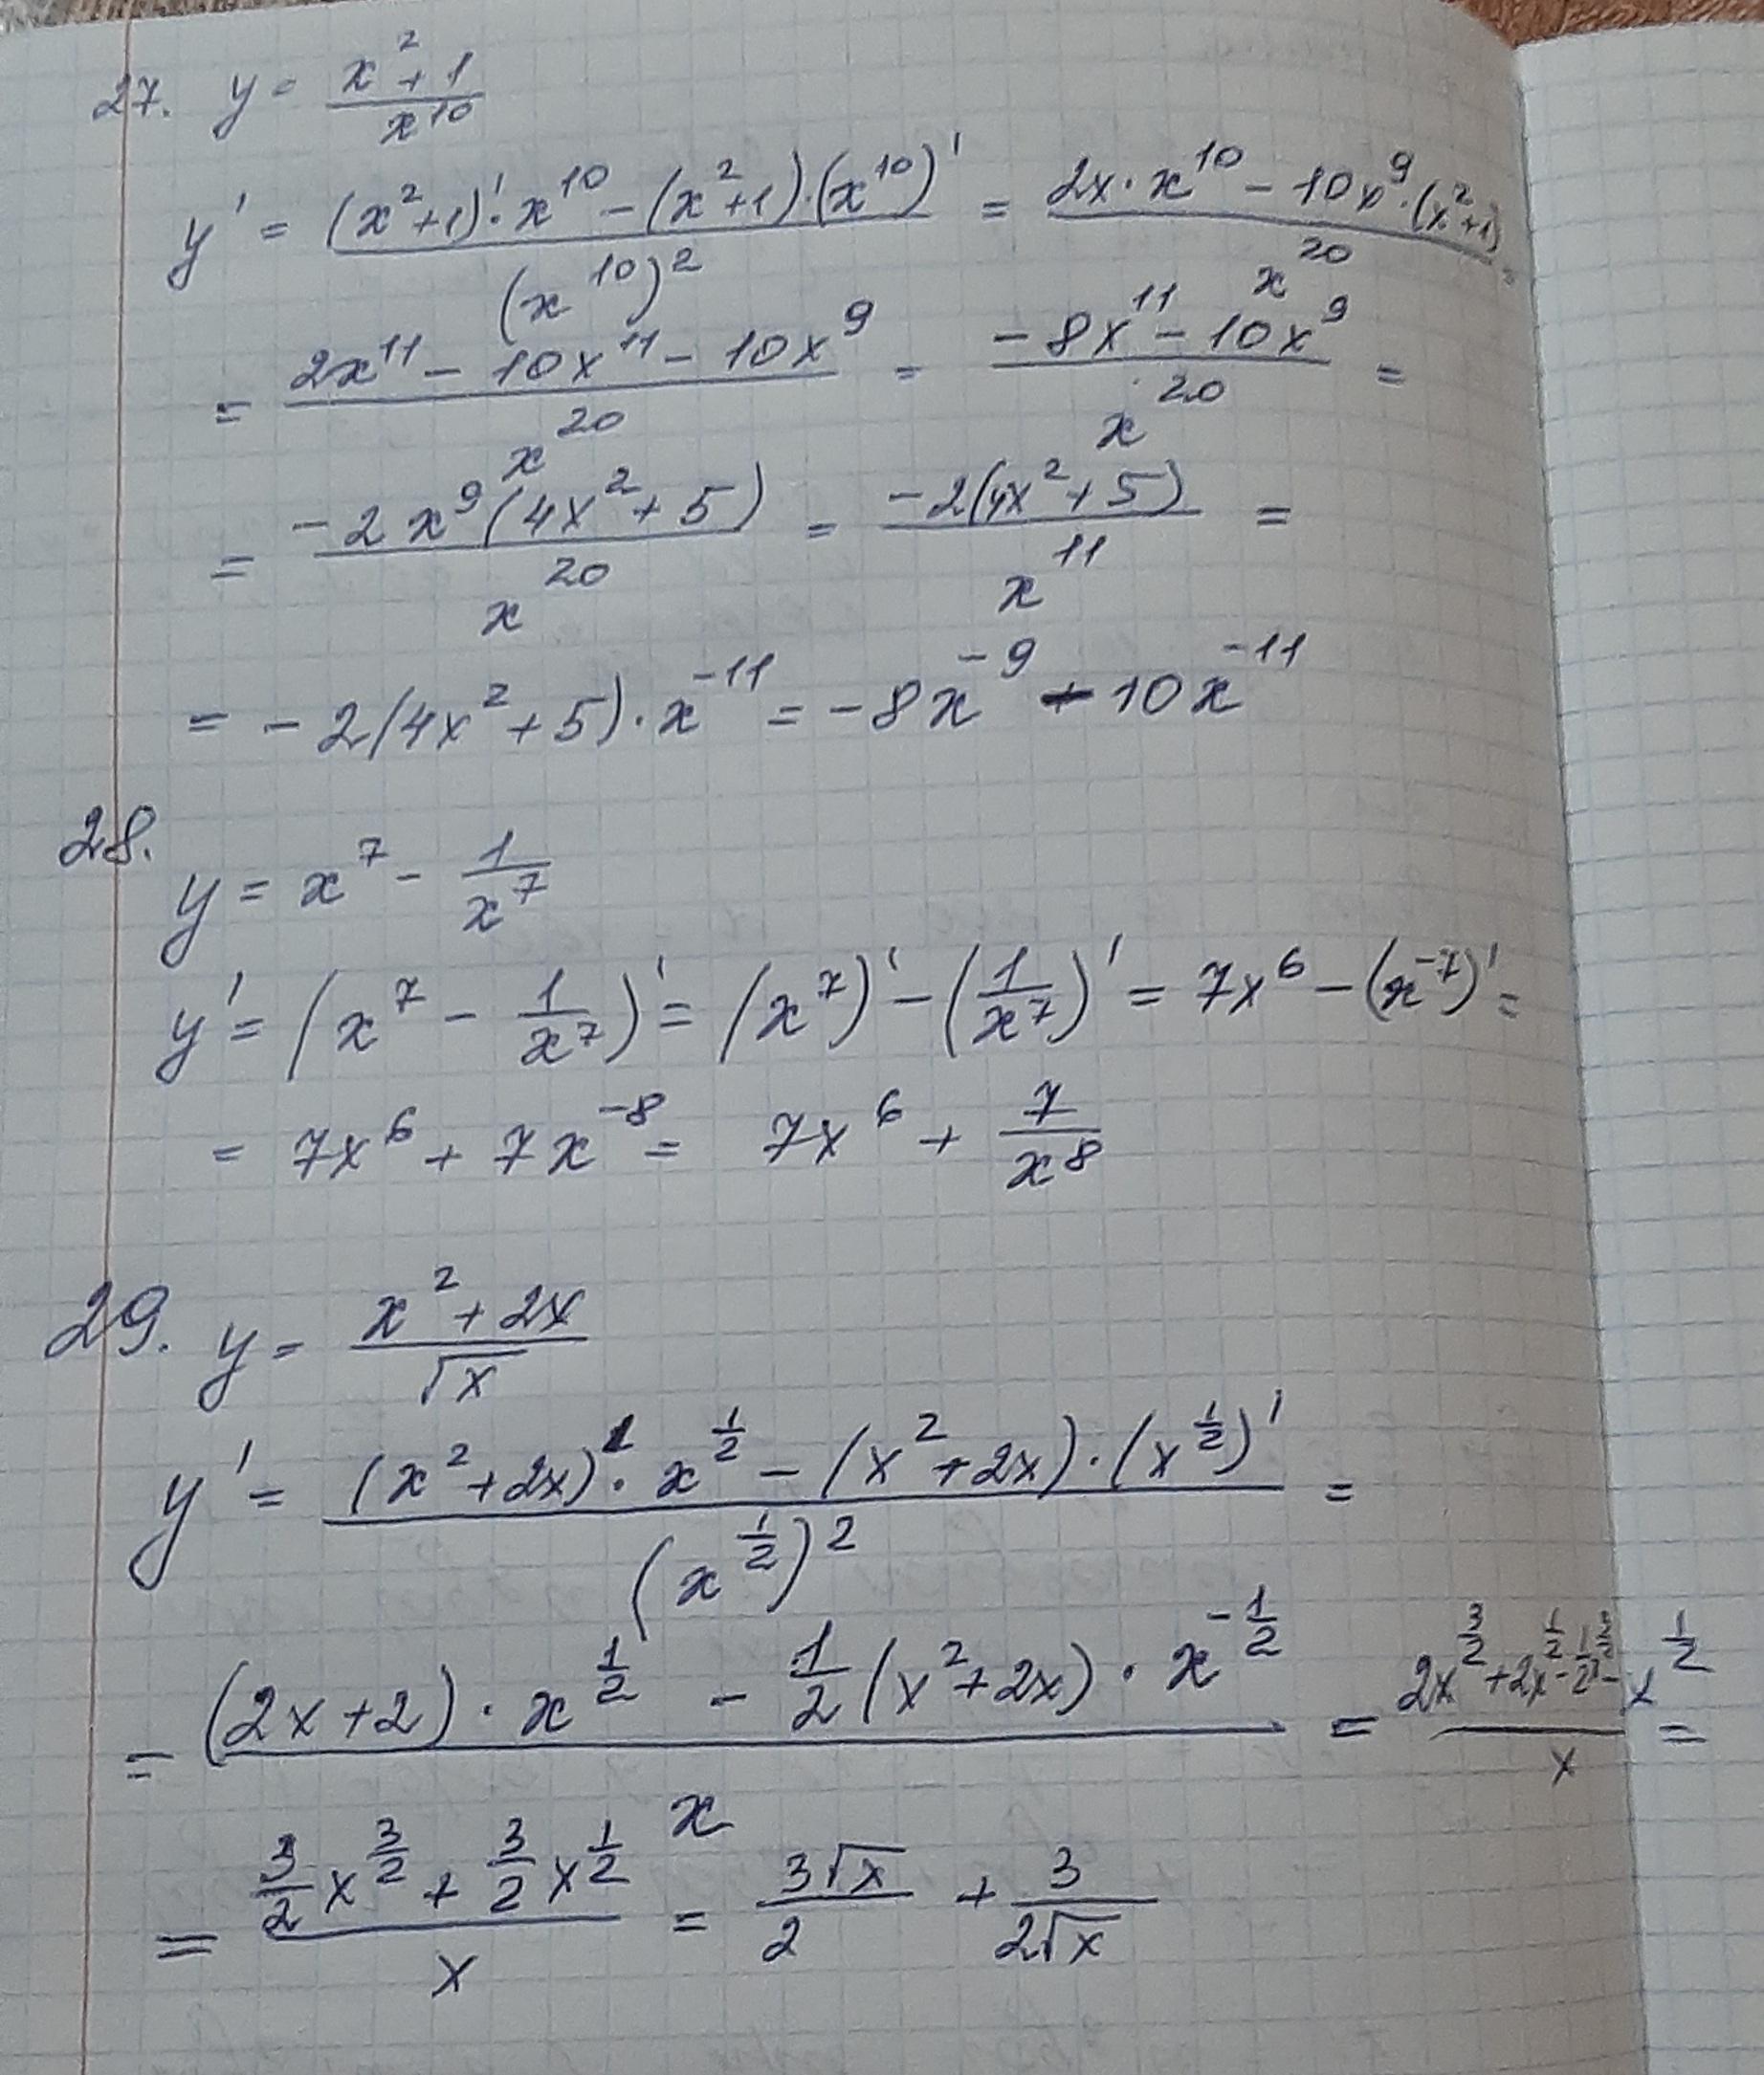 27. y = (x² + 1)/x¹⁰
y' = ((x²+1)' · x¹⁰ − (x²+1)·(x¹⁰)')/(x¹⁰)² = (2x · x¹⁰ − 10x⁹·(x²+1))/x²⁰ =
= (2x¹¹ − 10x¹¹ − 10x⁹)/x²⁰ = (−8x¹¹ − 10x⁹)/x²⁰ =
= (−2x⁹(4x² + 5))/x²⁰ = (−2(4x² + 5))/x¹¹ =
= −2(4x² + 5) · x⁻¹¹ = −8x⁻⁹ − 10x⁻¹¹
28.
y = x⁷ − 1/x⁷
y' = (x⁷ − 1/x⁷)' = (x⁷)' − (1/x⁷)' = 7x⁶ − (x⁻⁷)' =
= 7x⁶ + 7x⁻⁸ = 7x⁶ + 7/x⁸
29. y = (x² + 2x)/√x
y' = ((x² + 2x)' · x^(1/2) − (x² + 2x) · (x^(1/2))')/(x^(1/2))² =
= ((2x + 2) · x^(1/2) − 1/2(x² + 2x) · x^(−1/2))/x = (2x^(3/2) + 2x^(1/2) − 1/2x^(3/2) − x^(1/2))/x =
= (3/2x^(3/2) + 3/2x^(1/2))/x = 3√x/2 + 3/(2√x)